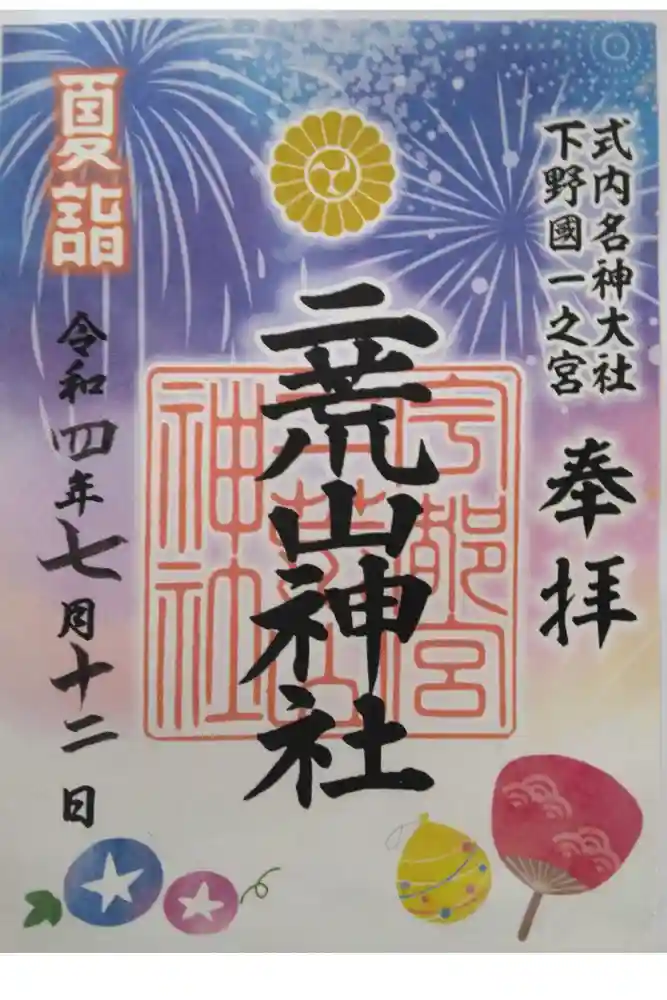 式内名神大社
下野國一之宮
奉拝
二荒山神社
宇都宮
二荒山
神社
夏詣
令和四年七月十二日